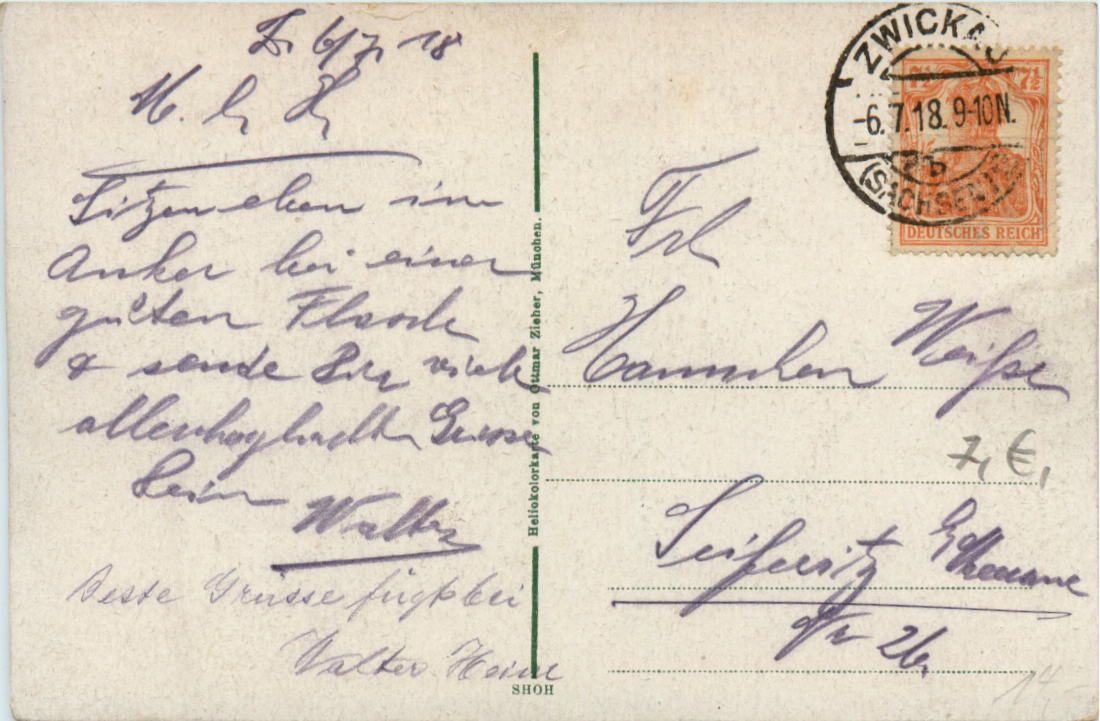 Z. 6/7. 18
M. l. H
Sitzen eben im
Anker bei einer
guten Flasche
& sende Dir viele
allerherzlichsten Grüsse
Dein
Walter
Beste Grüsse fügt bei
Walter Heine
Heliokolorkarte von Ottmar Zieher, München.
SHOH
ZWICKAU
-6.7.18. 9-10N.
(SACHSEN)
7½ 7½
DEUTSCHES REICH
Frl
Hannchen Weiße
7,€,
Seiferitz
Nr 26